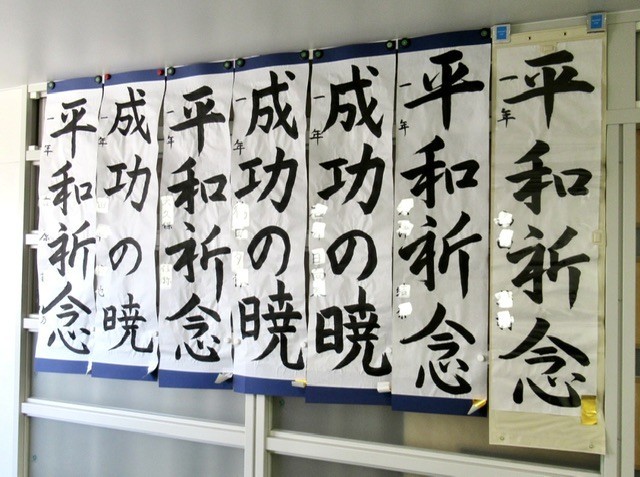 平和祈念
一年
平和祈念
一年
成功の暁
一年
成功の暁
一年
平和祈念
一年
成功の暁
一年
平和祈念
一年